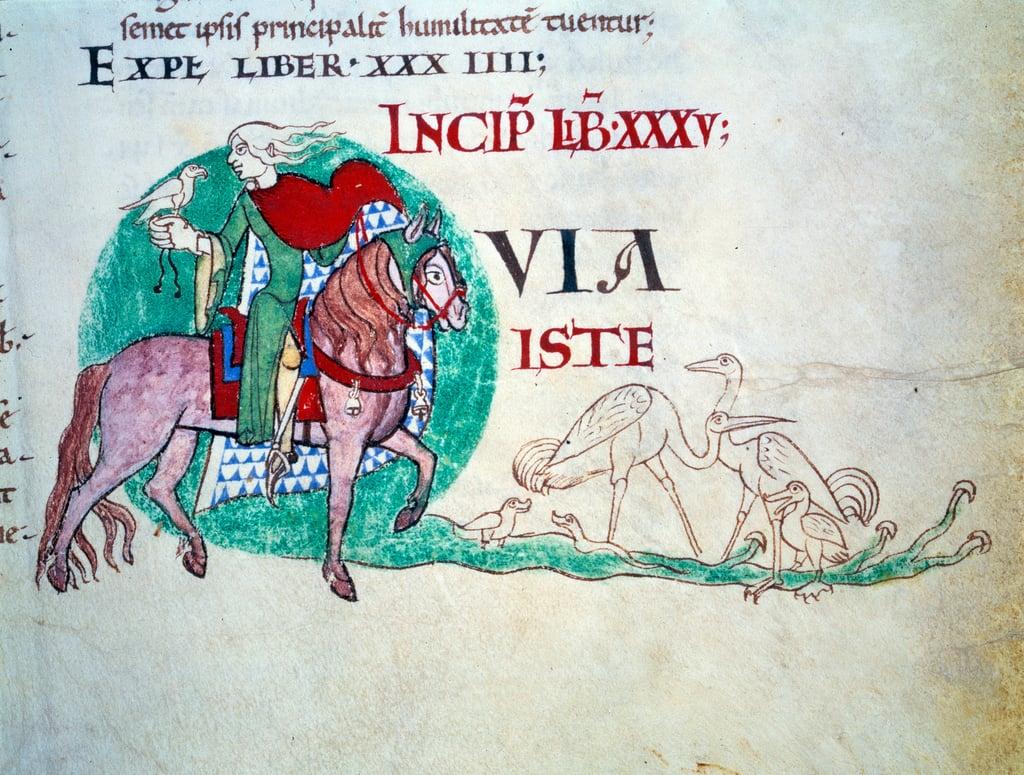 semet ipsis principalit̃ humilitatẽ tuentur;
EXPƚ LIBER·XXX IIII;
INCIP̃ LIB̃·XXXV;
VIA
ISTE